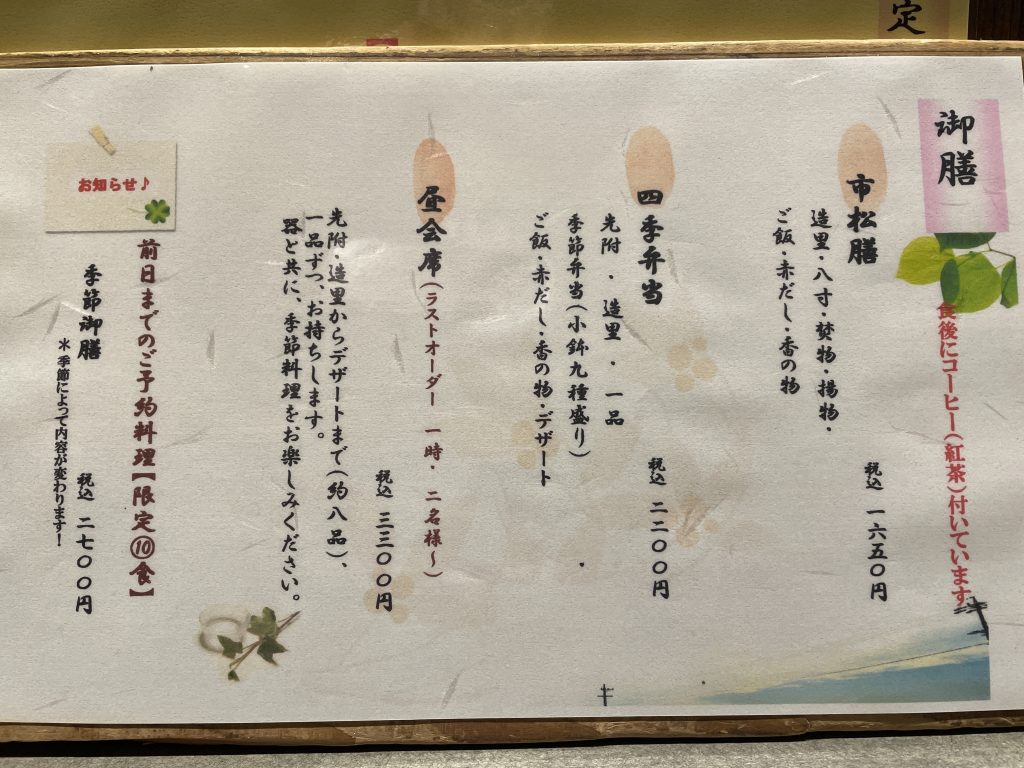 定
御膳
食後にコーヒー(紅茶)付いています
市松膳
造里・八寸・焚物・揚物・
ご飯・赤だし・香の物
税込 一六五〇円
四季弁当
先附・造里・一品
季節弁当(小鉢九種盛り)
ご飯・赤だし・香の物・デザート
税込 二二〇〇円
昼会席(ラストオーダー 一時・二名様~)
税込 三三〇〇円
先附・造里からデザートまで(約八品)、
一品ずつ、お持ちします。
器と共に、季節料理をお楽しみください。
お知らせ♪
前日までのご予約料理【限定⑩食】
季節御膳
税込 二七〇〇円
*季節によって内容が変わります!